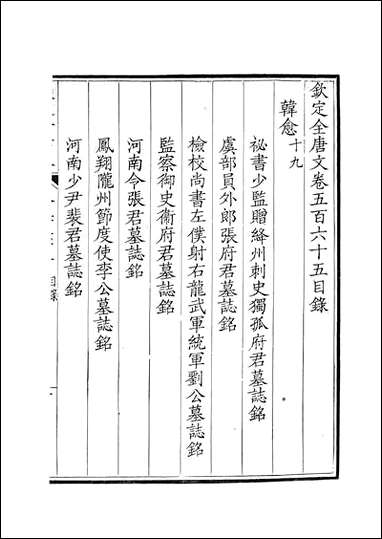 欽定全唐文卷五百六十五目錄
韓愈十九
祕書少監贈絳州刺史獨孤府君墓誌銘
虞部員外郎張府君墓誌銘
檢校尚書左僕射右龍武軍統軍劉公墓誌銘
監察御史衛府君墓誌銘
河南令張君墓誌銘
鳳翔隴州節度使李公墓誌銘
河南少尹裴君墓誌銘
目錄